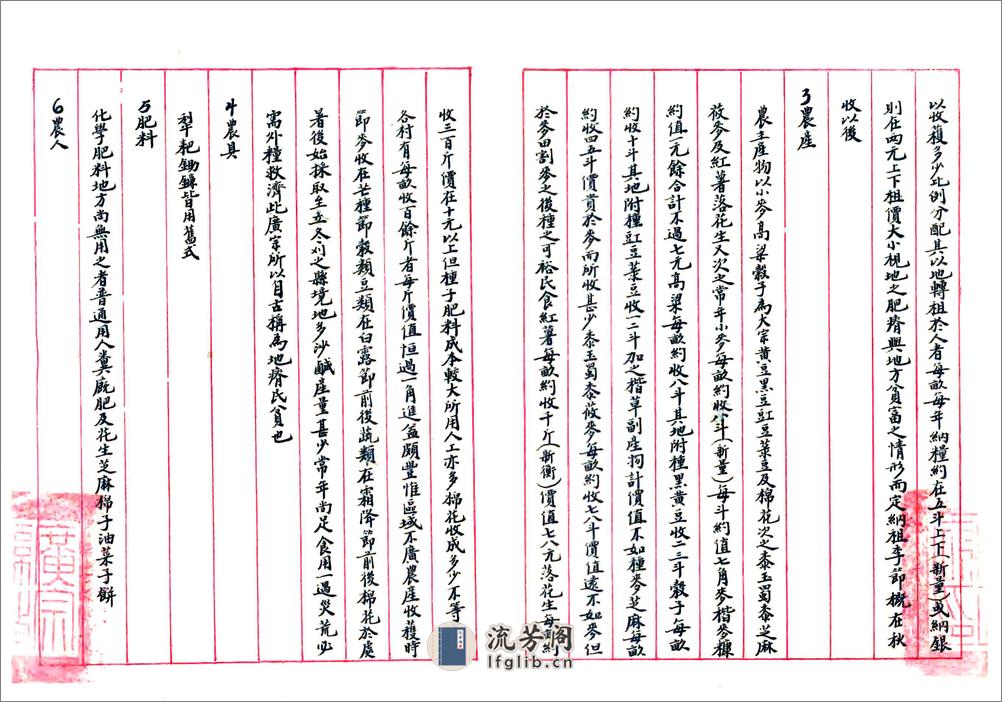 以收穫多少比例分配其以地轉租於人者每畝每年納糧約在五斗上下(新量)或納銀
則在两元上下租價大小視地之肥瘠與地方貧富之情形而定納租季節概在秋
收以後
3農產
農主產物以小麥高粱穀子為大宗黃豆黑豆豇豆菉豆及棉花次之黍玉蜀黍芝麻
莜麥及紅薯落花生又次之常年小麥每畝約收八斗(新量)每斗約值七角麥楷麥糠
約值一元餘合計不過七元高粱每畝約收八斗其地附種黑黃豆收二三斗穀子每畝
約收十斗其地附種豇豆菉豆收一二斗加之楷草副產砌計價值不如種麥芝麻每畝
約收四五斗價貴於麥而所收甚少黍玉蜀黍莜麥每畝約收七八斗價值遠不如麥但
於麥田割麥之後種之可裕民食紅薯每畝約收千斤(新衡)價值七八元落花生每畝約
收三百斤價在十元以上但種子肥料成本較大所用人工亦多棉花收成多少不等
各村有每畝收百餘斤者每斤價值恒過一角進益頗豐惟區域不廣農產收獲時
節麥收在芒種節穀類豆類在白露節前後蔬類在霜降節前後棉花於處
暑後始採取至立冬刈之縣境地多沙鹹產量甚少常年尚足食用一遇災荒必
需外糧救濟此廣宗所以自古稱為地瘠民貧也
4農具
犁耙鋤鐮皆用舊式
5肥料
化學肥料地方尚無用之者普通用人糞廄肥及花生芝麻棉子油菜子餅
6農人
流芳阁
lfglib.cn
廣宗